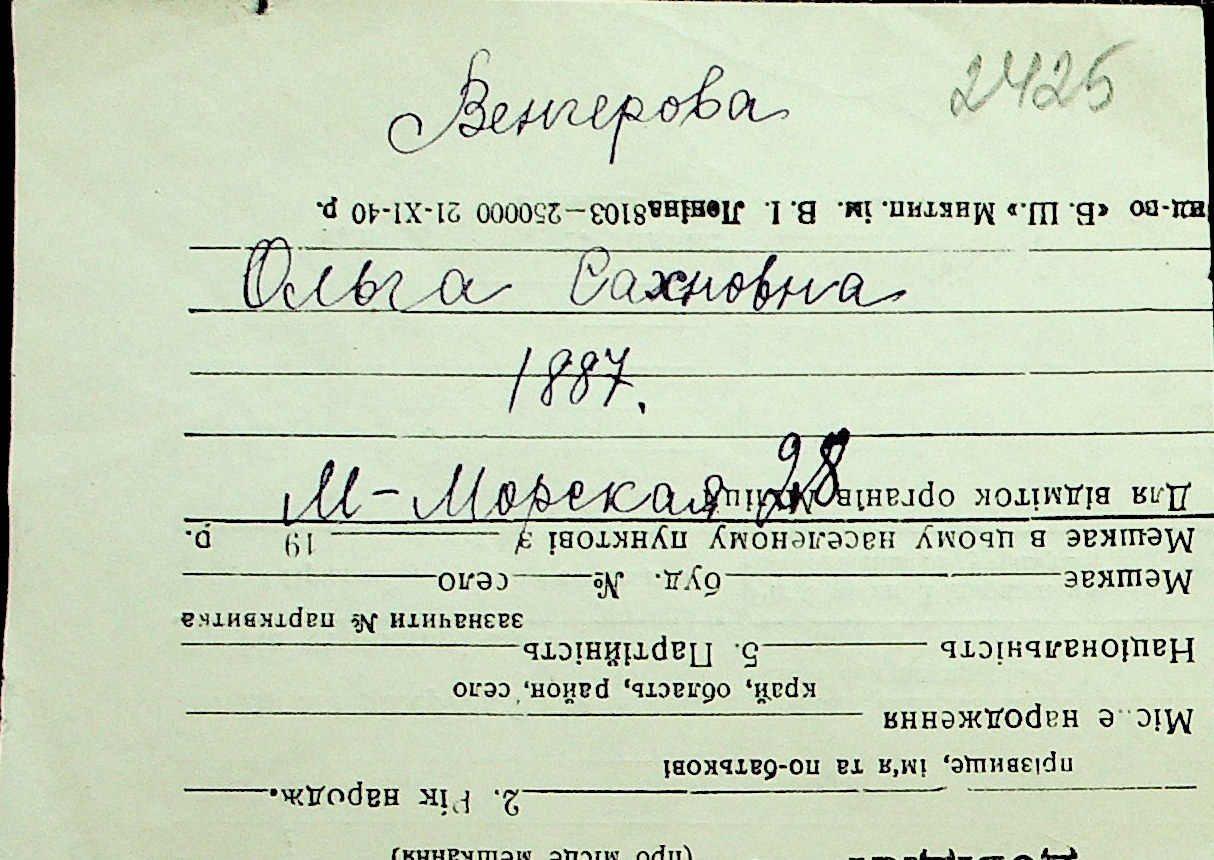 Венгерова 2425
вид-во «Б. Ш.» Миктип. ім. В. І. Леніна 8103—250000 21-XI-40 р.
Ольга Сахновна
1887.
М-Морская 28
Для відміток органів міліції
Мешкає в цьому населеному пункті з 19 р.
Мешкає буд. № село
зазначити № партквитка
Національність 5. Партійність
край, область, район, село
Міс..е народження
прізвище, ім'я та по-батькові
2. Рік народж.
(про місце мешкання)